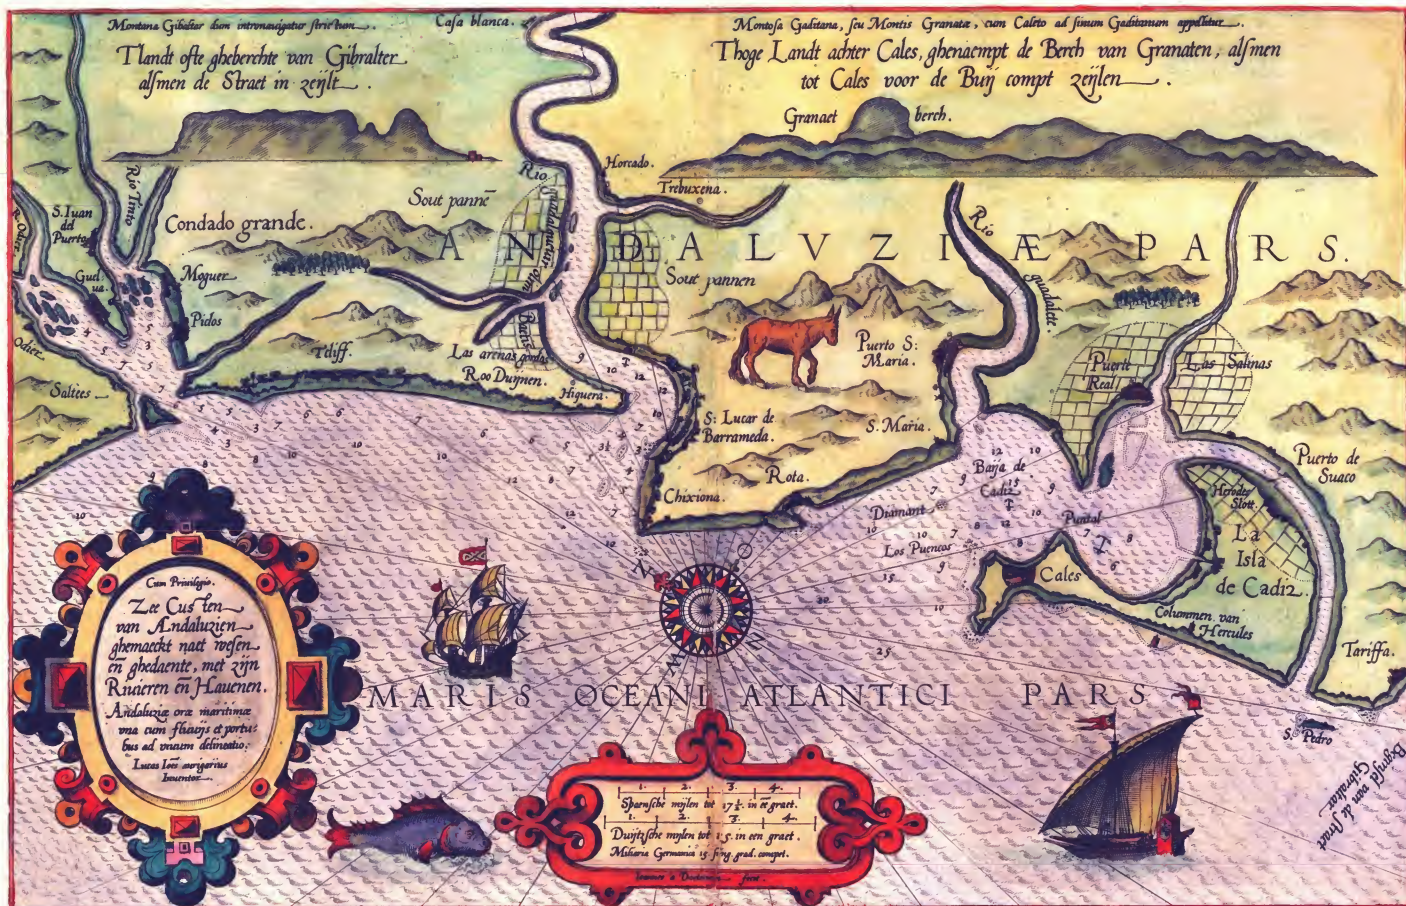 Montana Gibaltar dum intronavigatur strictum.
Tlandt ofte gheberchte van Gibralter
alsmen de Straet in zeijlt.
Casa blanca.
Montosa Gaditana, seu Montis Granatæ, cum Caleto ad sinum Gaditanum appellitur.
Thoge Landt achter Cales, ghenaempt de Berch van Granaten, alsmen
tot Cales voor de Buij compt zeijlen.
Granaet berch.
Horcado.
Trebuxena.
Rio
Rio Tinto
S. Iuan
del
Puerto
Condado grande.
Sout pannē
ANDALVZIÆ PARS.
Sout pannen
Rio
guadalete.
Moguer
Pidos
Odier
Saltees
Tdiff.
Las arenas gordas
Roo Duijnen.
Higuera.
Bætis
Puerto S:
Maria.
S. Maria.
S: Lucar de
Barrameda.
Rota.
Chixiona.
Puerte
Real
Las Salinas
Puerto de
Suaco
Baija de
Cadiz
Diamant
Los Puercos
Puntal
Herodes
Slott.
La
Isla
de Cadiz.
Cales
Columnen van
Hercules
Tariffa.
S. Pedro
Gibraltar
MARIS OCEANI ATLANTICI PARS
Cum Privilegio.
Zee Custen
van Andaluzien
ghemaeckt naet wesen
eñ ghedaente, met zijn
Rivieren eñ Havenen.
Andaluziæ oræ maritimæ
una cum fluvijs et portu-
bus ad vivum delineatio:
Lucas Ioēs aurigarius
Inventor.
1. 2. 3. 4.
Spaensche mijlen tot 17½ in eē graet.
1. 2. 3. 4.
Duijtzsche mijlen tot 15. in een graet.
Miliaria Germanica 15 sing. grad. compet.
Ioannes a Doetecum fecit.